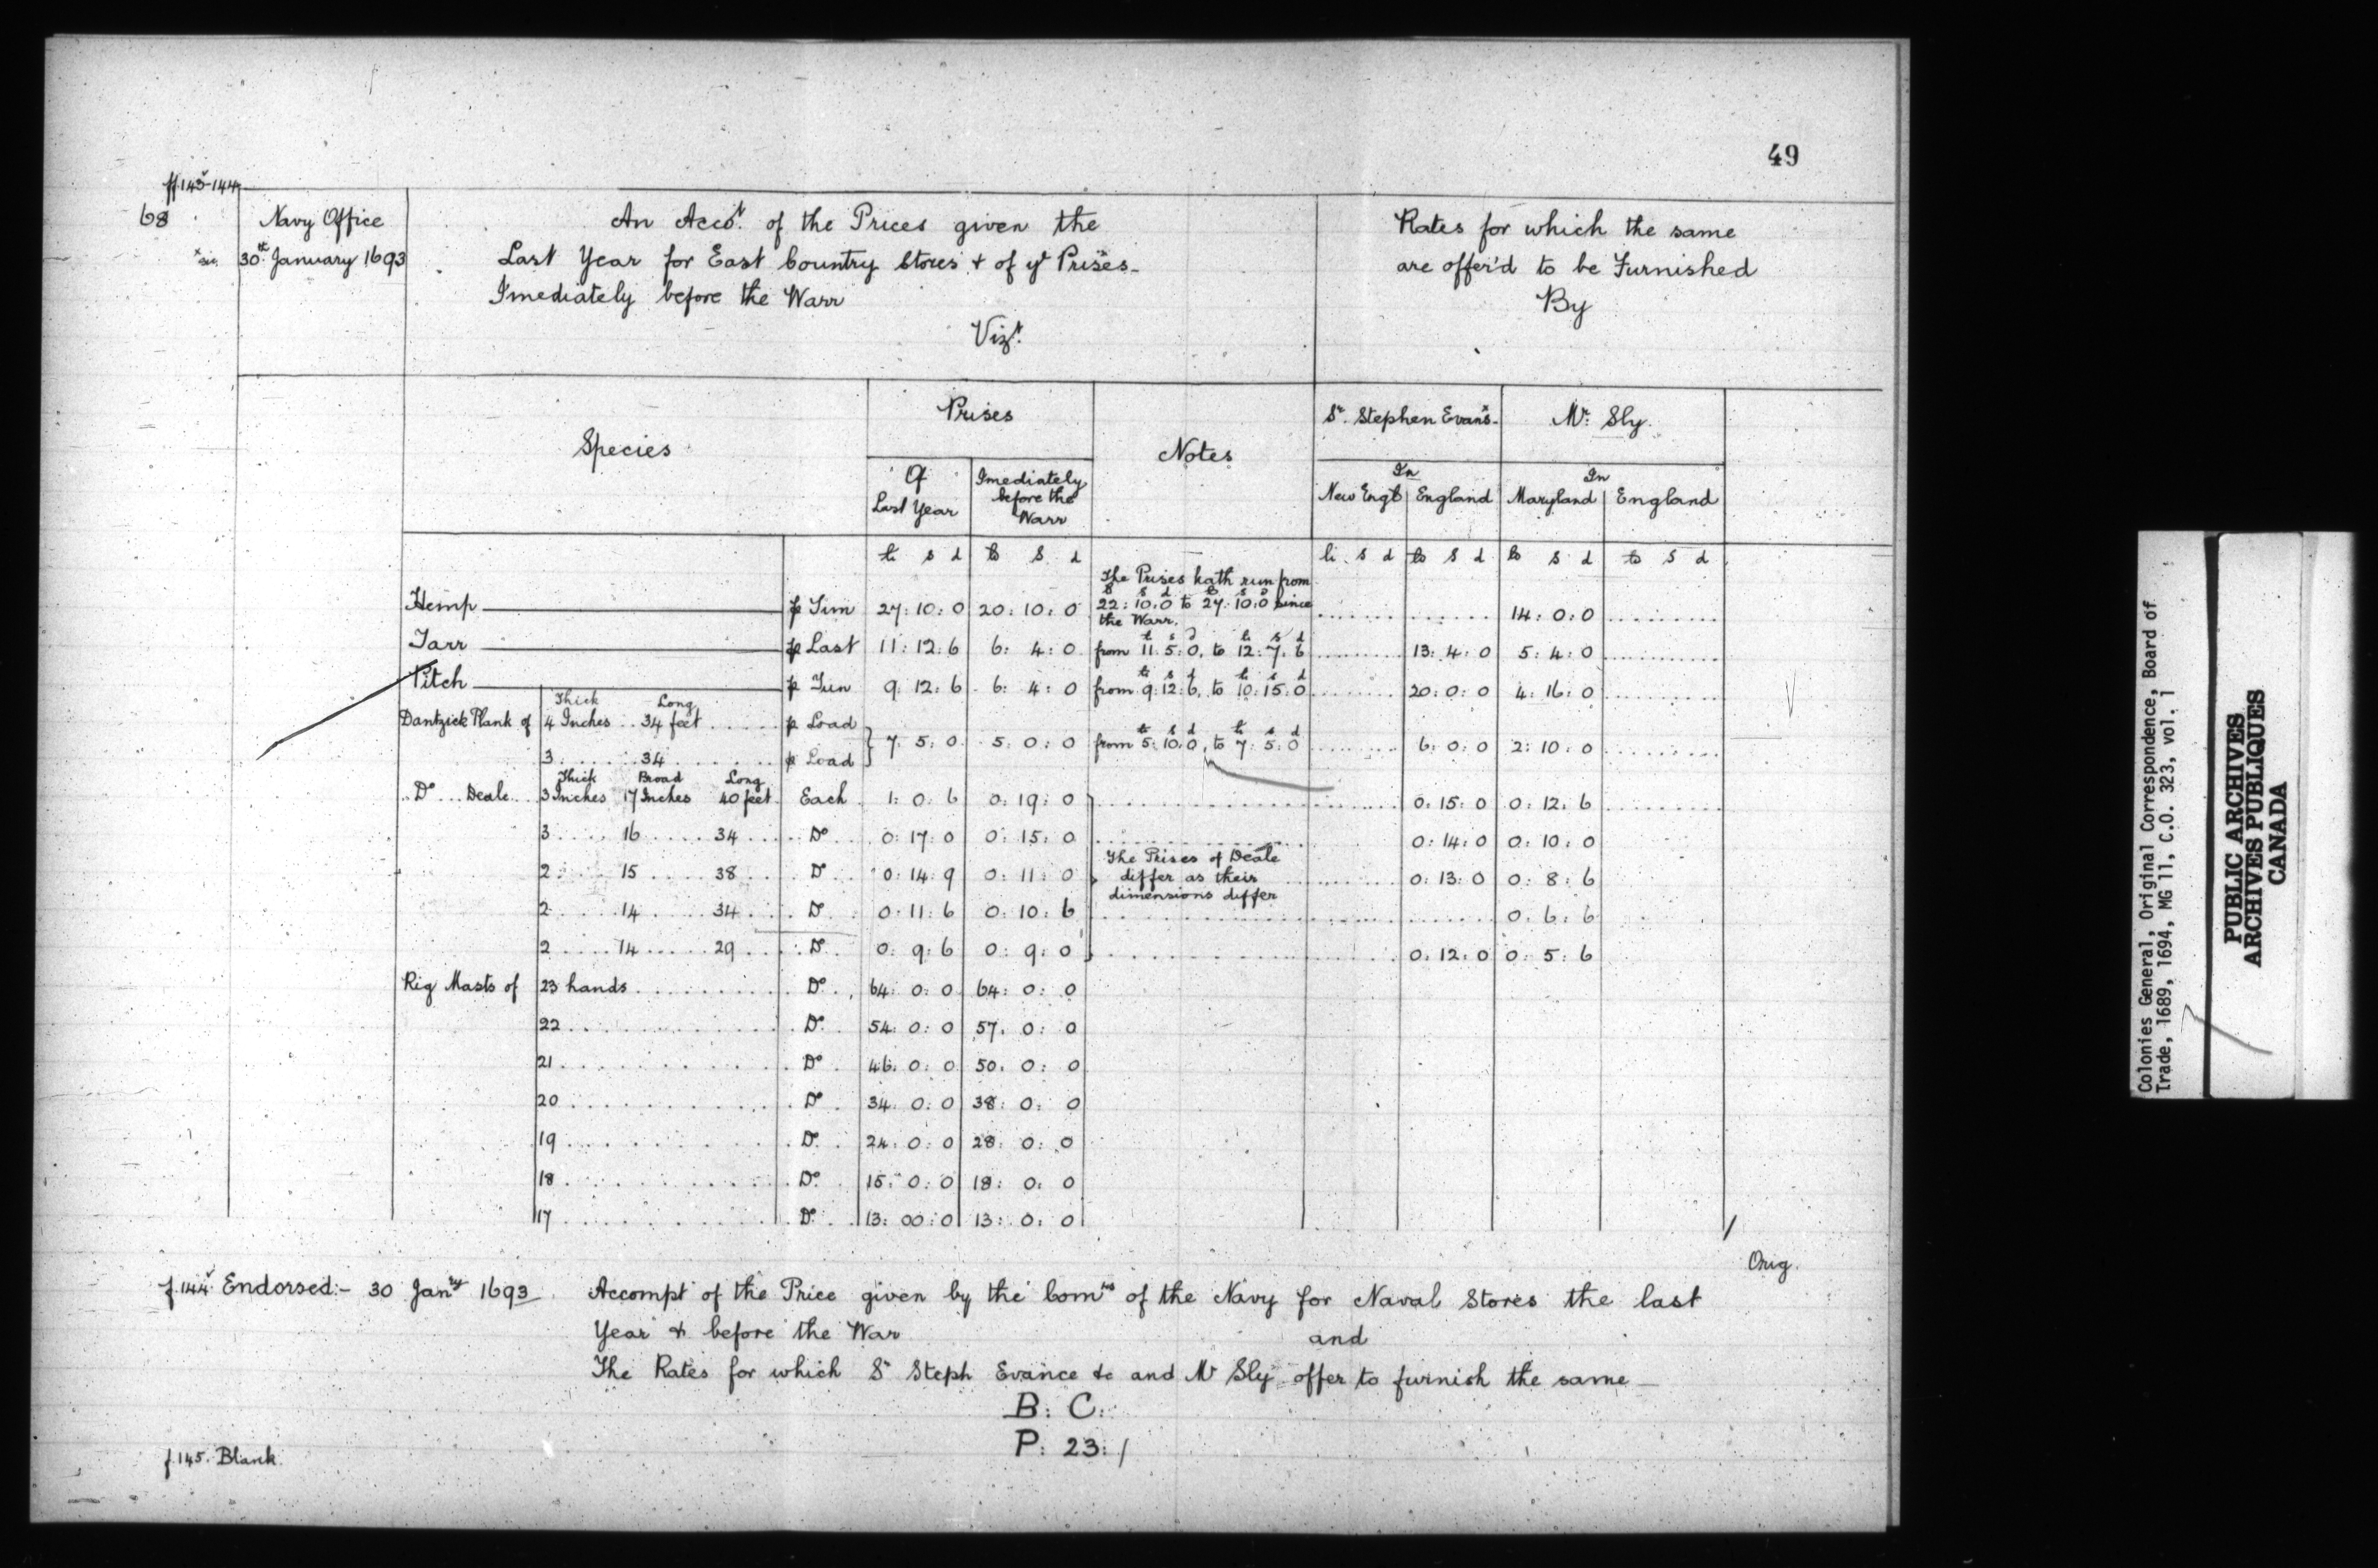 49
ff.143v-144
68
Navy Office
x sic. 30th January 1693
An Acco.t of the Prices given the
Last Year for East Country Stores + of ye Prises
Imediately before the Warr
Vizt.
Rates for which the same
are offer'd to be Furnished
By
Species
Prises
Of Last Year
Imediately before the Warr
Notes
Sr. Stephen Evans
In
New Engd England
Mr. Sly
In
Maryland England
li s d li s d li s d li s d li s d li s d
The Prises hath run from
li s d li s d
Hemp p Tun 27: 10: 0 20: 10: 0 22: 10: 0 to 27: 10: 0 since 14: 0: 0
the Warr.
li s d li s d
Tarr p Last 11: 12: 6 6: 4: 0 from 11. 5. 0. to 12: 7. 6 13: 4: 0 5: 4: 0
li s d li s d
Pitch p Tun 9: 12: 6 6: 4: 0 from 9: 12: 6, to 10: 15: 0 20: 0: 0 4: 16: 0
Thick Long
Dantzick Plank of 4 Inches 34 feet p Load
li s d li s d
7. 5: 0 5: 0: 0 from 5: 10: 0, to 7: 5: 0 6: 0: 0 2: 10: 0
3 34 p Load
Thick Broad Long
Do Deale 3 Inches 17 Inches 40 feet Each 1: 0: 6 0: 19: 0 0: 15: 0 0: 12: 6
3 16 34 Do 0: 17: 0 0: 15: 0 0: 14: 0 0: 10: 0
The Prises of Deale
2 15 38 Do 0: 14: 9 0: 11: 0 differ as their 0: 13: 0 0: 8: 6
dimensions differ
2 14 34 Do 0: 11: 6 0: 10: 6 0: 6: 6
2 14 29 Do 0: 9: 6 0: 9: 0 0: 12: 0 0: 5: 6
Rig Masts of 23 hands Do 64: 0: 0 64: 0: 0
22 Do 54: 0: 0 57. 0: 0
21 Do 46: 0: 0 50. 0: 0
20 Do 34: 0: 0 38: 0: 0
19 Do 24: 0: 0 28: 0: 0
18 Do 15: 0: 0 18: 0: 0
17 Do 13: 00: 0 13: 0: 0
Orig.
f.144v Endorsed:- 30 Janry 1693. Accompt of the Price given by the Comrs of the Navy for Naval Stores the last
Year & before the War
and
The Rates for which Sr Steph Evance &c and Mr Sly offer to furnish the same
B: C:
P: 23:/
f.145. Blank
Colonies General, Original Correspondence, Board of
Trade, 1689, 1694, MG 11, C.O. 323, vol. 1
PUBLIC ARCHIVES
ARCHIVES PUBLIQUES
CANADA